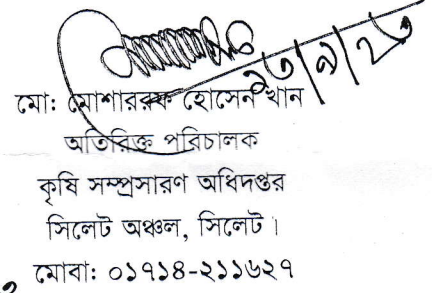 মো: মোশাররফ হোসেন খান
অতিরিক্ত পরিচালক
কৃষি সম্প্রসারণ অধিদপ্তর
সিলেট অঞ্চল, সিলেট।
মোবা: ০১৭১৪-২১১৬২৭